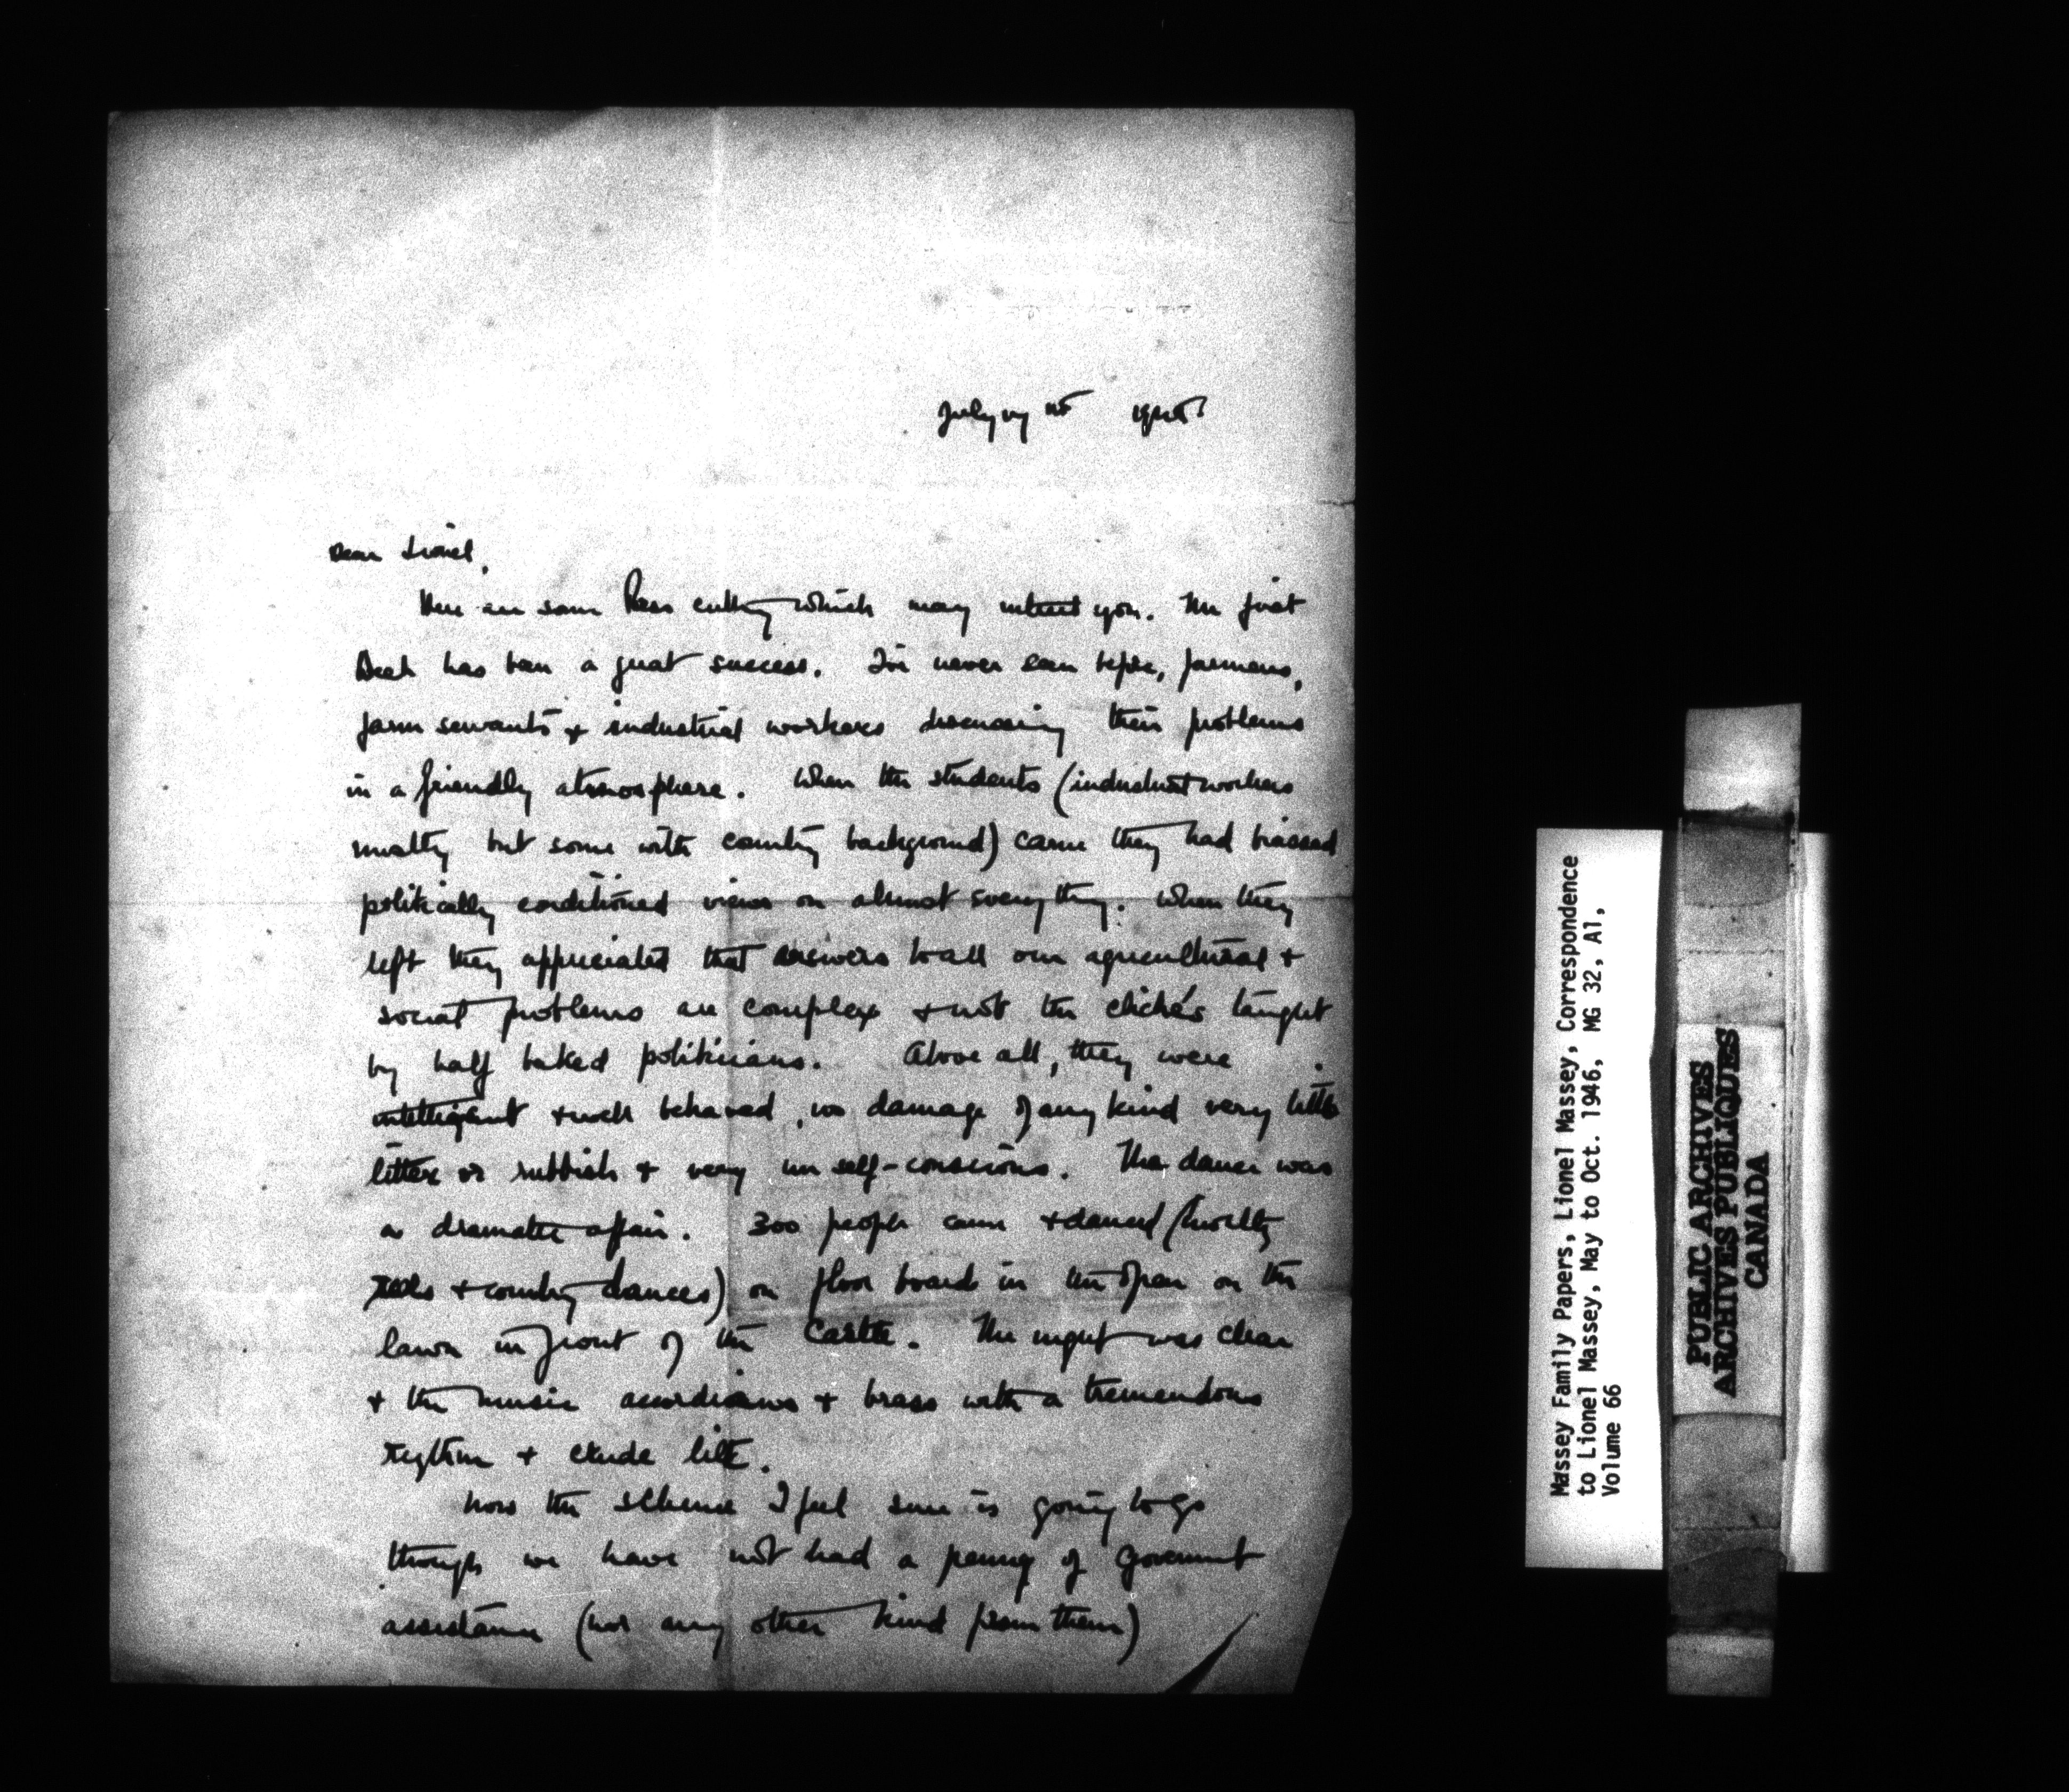 July
Dear Lionel,
Here are some Press cutting which may interest you. The first
Week has been a great success. I've never seen before, farmers,
farm servants + industrial workers discussing their problems
in a friendly atmosphere. When the students (industrial workers
mostly but some with country background) came they had biassed
politically conditioned views on almost everything. When they
left they appreciated that answers to all our agricultural +
social problems are complex + not the clichés taught
by half baked politicians. Above all, they were
intelligent + well behaved, no damage of any kind very little
litter or rubbish + very un self-conscious. The dance was
a dramatic affair. 300 people came + danced (mostly
reels + country dances) on floor boards in the open on the
lawn in front of the Castle. The night was clear
+ the music accordians + brass with a tremendous
rythm + crude lilt.
Now the scheme I feel sure is going to go
though we have not had a penny of Goverment
assistance (nor any other kind from them)
Massey Family Papers, Lionel Massey, Correspondence
to Lionel Massey, May to Oct. 1946, MG 32, A1,
Volume 66
PUBLIC ARCHIVES
ARCHIVES PUBLIQUES
CANADA